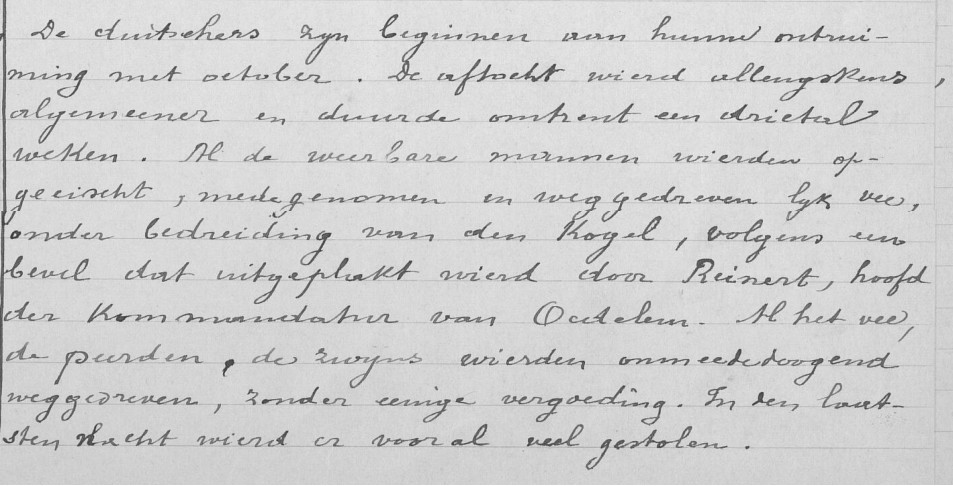 De duitschers zyn beginnen aan hunne ontrui-
ming met october. De aftocht wierd allengskens,
algemeener en duurde omtrent een drietal
weken. Al de weerbare mannen wierden op-
geeischt, medegenomen en weggedreven lyk vee,
onder bedreiding van den Kogel, volgens een
bevel dat uitgeplakt wierd door Reinert, hoofd
der Kommandatur van Oedelem. Al het vee,
de peerden, de zwyns wierden onmeededoogend
weggedreven, zonder eenige vergoeding. In den laat-
sten nacht wierd er vooral veel gestolen.